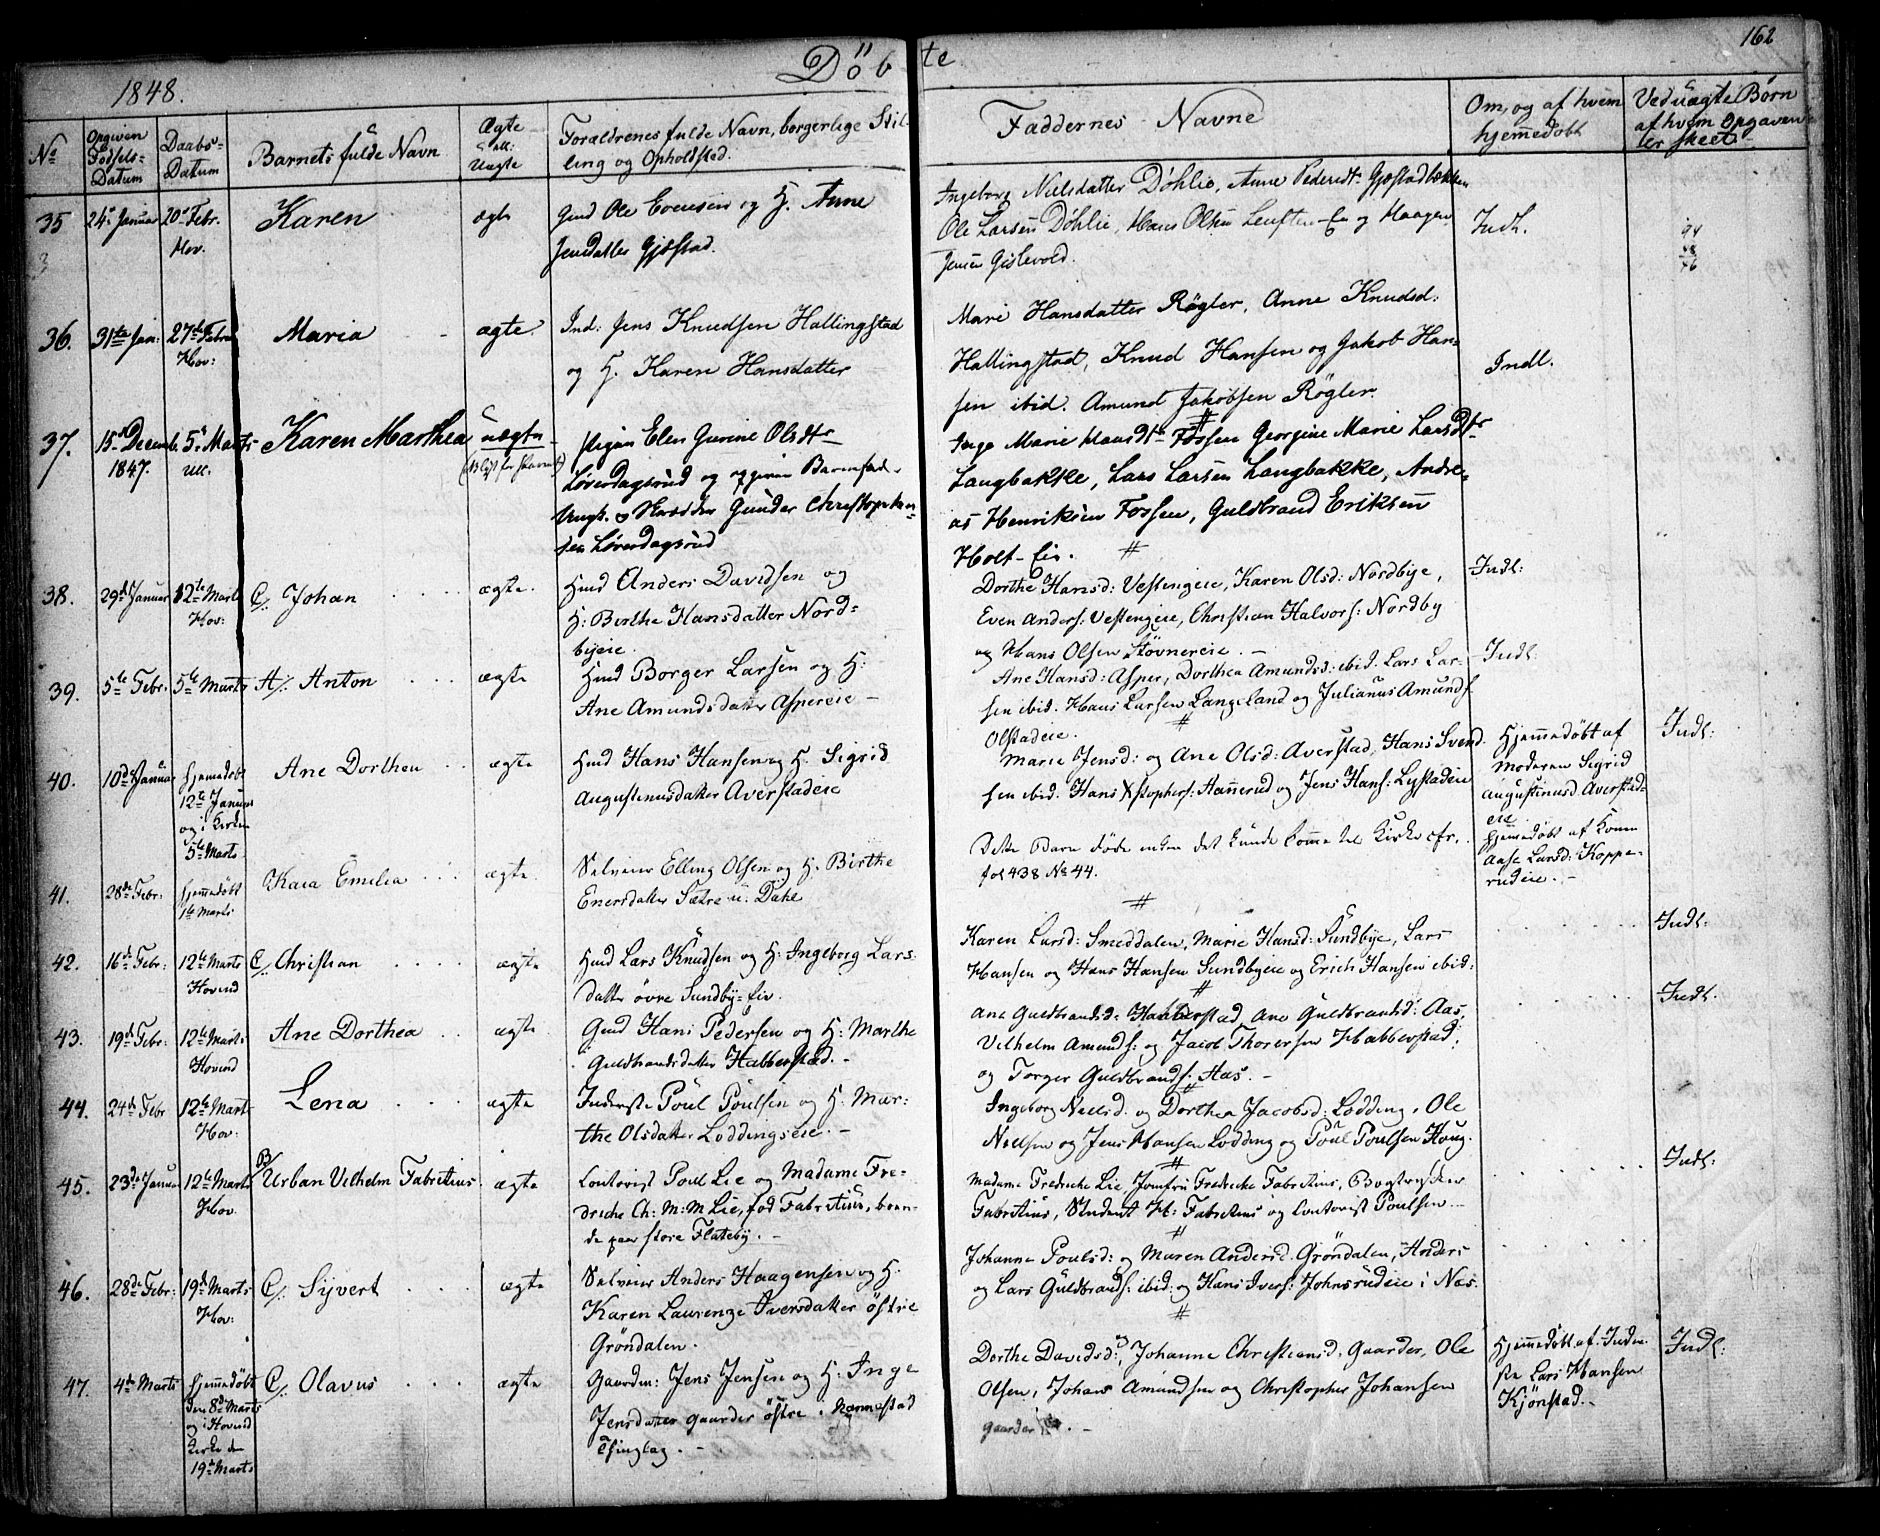 1848.
Döbte
162
No
Opgiven Födsels-Datum
Daabs-Datum
Barnets fulde Navn
Ægte ell: Uægte
Forældrenes fulde Navn, borgerlige Stilling og Opholdsted.
Faddernes Navne
Om, og af hvem hjemedöbt
Ved uægte Börn af hvem Opgaven er skeet
35
24de Januar
20de Febr. Hov.
Karen
ægte
Gmd Ole Evensen og H. Anne
Jensdatter Gjestad.
Ingeborg Nielsdatter Döhlie, Anne Pedersdt. Gjestadbakken
Ole Larsen Döhlie, Hans Olsen og Haagen
Jensen Gislevold.
Indl.
36.
31te Jan:
27de Febr. Hov:
Maria
ægte.
Ind: Jens Knudsen Hallingstad
og H. Karen Hansdatter
Mari Hansdatter Røgler, Anne Knudsd:
Hallingstad, Knud Hansen og Jakob Han-
sen ibid. Amund Jakobsen Røgler.
Indl.
37.
15de Decemb. 1847.
5te Marts Ull.
Karen Marthea
uægte
Pigen Elen Gurine Olsdtr
Løverdagsrud og opgiven Barnefad.
Ungk. Skrædder Gunder Christophers-
sen Løverdagsrud
Inge Marie Hansdtr Fossen Georgine Marie Larsdtr
Langbakke, Lars Larsen Langbakke, Andre-
as Henriksen Fossen, Guldbrand Eriksen
Holt-Eie.
38.
29de Januar
12te Marts Hov:
C/. Johan
ægte.
Hmd Anders Davidsen og
H: Birthe Hansdatter Nord-
byeie.
Dorthe Hansd: Vestengeie, Karen Olsd: Nordbye,
Even Anders: Vestengeie, Christian Halvors: Nordby
og Hans Olsen Stövnereie. -
Indl:
39.
5te Febr.
5te Marts
A/. Anton
ægte
Hmd Borger Larsen og H:
Ane Amundsdatter Aspereie -
Ane Hansd: Asper, Dorthea Amundsd: ibid. Lars Lar-
sen ibid. Hans Larsen Langeland og Julianus Amunds
Olstadeie.
Indl.
40.
10de Januar
hjemmedöbt
12te Januar
og i Kirken
5te Marts
Ane Dorthea
ægte
Hmd Hans Hansen og H. Sigrid
Augustinusdatter Averstadeie
Marie Jensd: og Ane Olsd: Averstad, Hans Svend
sen ibid. Hans Xstophers: Hannerud og Jens Hans: Lystadeie
Hjemmedöbt af
Moderen Sigrid
Augustinusd. Averstad-
eie
Indl:
41.
28de Febr:
hjemmedöbt
1te Marts
Kaia Emilia
ægte
Selveier Elling Olsen og H. Birthe
Enersdatter Sætre u. Dahl
Dette Barn döde inden det kunde komme til Kirke cfr.
fol 438 No 44.
hjemmedöbt af Konen
Aase Larsd: Koppe-
rudeie. -
42.
16de Febr:
12te Marts Hovind
C/. Christian
ægte
Hmd Lars Knudsen og H: Ingeborg Lars
datter övre Sundby-Eie.
Karen Larsd: Smeddalen, Marie Hansd: Sundbye, Lars
Hansen og Hans Hansen Sundbyeie og Erich Hansen ibid:
Indl:
43.
19de Febr:
12te Marts Hovind
Ane Dorthea
ægte
Gmd Hans Pedersen og H: Marthe
Guldbrandsdatter Habberstad. -
Ane Guldbrandsd: Habberstad, Ane Guldbrandsd: Aas,
Vilhelm Amunds: og Jacob Thorersen Habberstad,
og Torger Guldbrands: Aas. -
Indl.
44.
24de Febr
12te Marts Hov:
Lena
ægte
Inderste Poul Poulsen og H: Mar-
the Olsdatter Loddingseie. -
Ingeborg Nielsd. og Dorthea Jacobsd: Lodding, Ole
Nielsen og Jens Hansen Lodding og Poul Poulsen Houg.
45.
23de Januar
12te Marts Hov.
B/ Urban Vilhelm Fabritius
ægte
Contorist Poul Lie og Madame Fre-
driche Ch: M: M Lie, föd Fabritius, boen-
de paa store Flateby. -
Madame Fredriche Lie Jomfru Fredricke Fabritius, Bogtrykker
Fabritius, Student H: Fabritius og Contorist Poulsen
Indl:
46.
28de Febr:
19de Marts Hov:
C/. Syvert
ægte
Selveier Anders Haagensen og H:
Karen Laurenze Iversdatter östre
Gröndalen.
Johanne Poulsd: og Maren Andersd. Gröndalen, Anders
og Lars Guldbrands: ibid: og Hans Ivers: Johnsrudeie i Næs.
47.
4de Marts
hjemmedöbt
den 8de Marts
og i Hovind
Kirke den
19de Marts
C/. Olavus
ægte
Gaardm: Jens Jensen og H: Inge
Jensdatter Gaarder östre i Nannestad
Thinglag. -
Dorthe Davidsd: Johanne Christiansd: Gaarder, Ole
Olsen, Johans Amundsen og Christopher Johansen
Gaarder
Hjemmedöbt af: Inder-
ste Lars Hansen
Kjönstad. -
Indl: